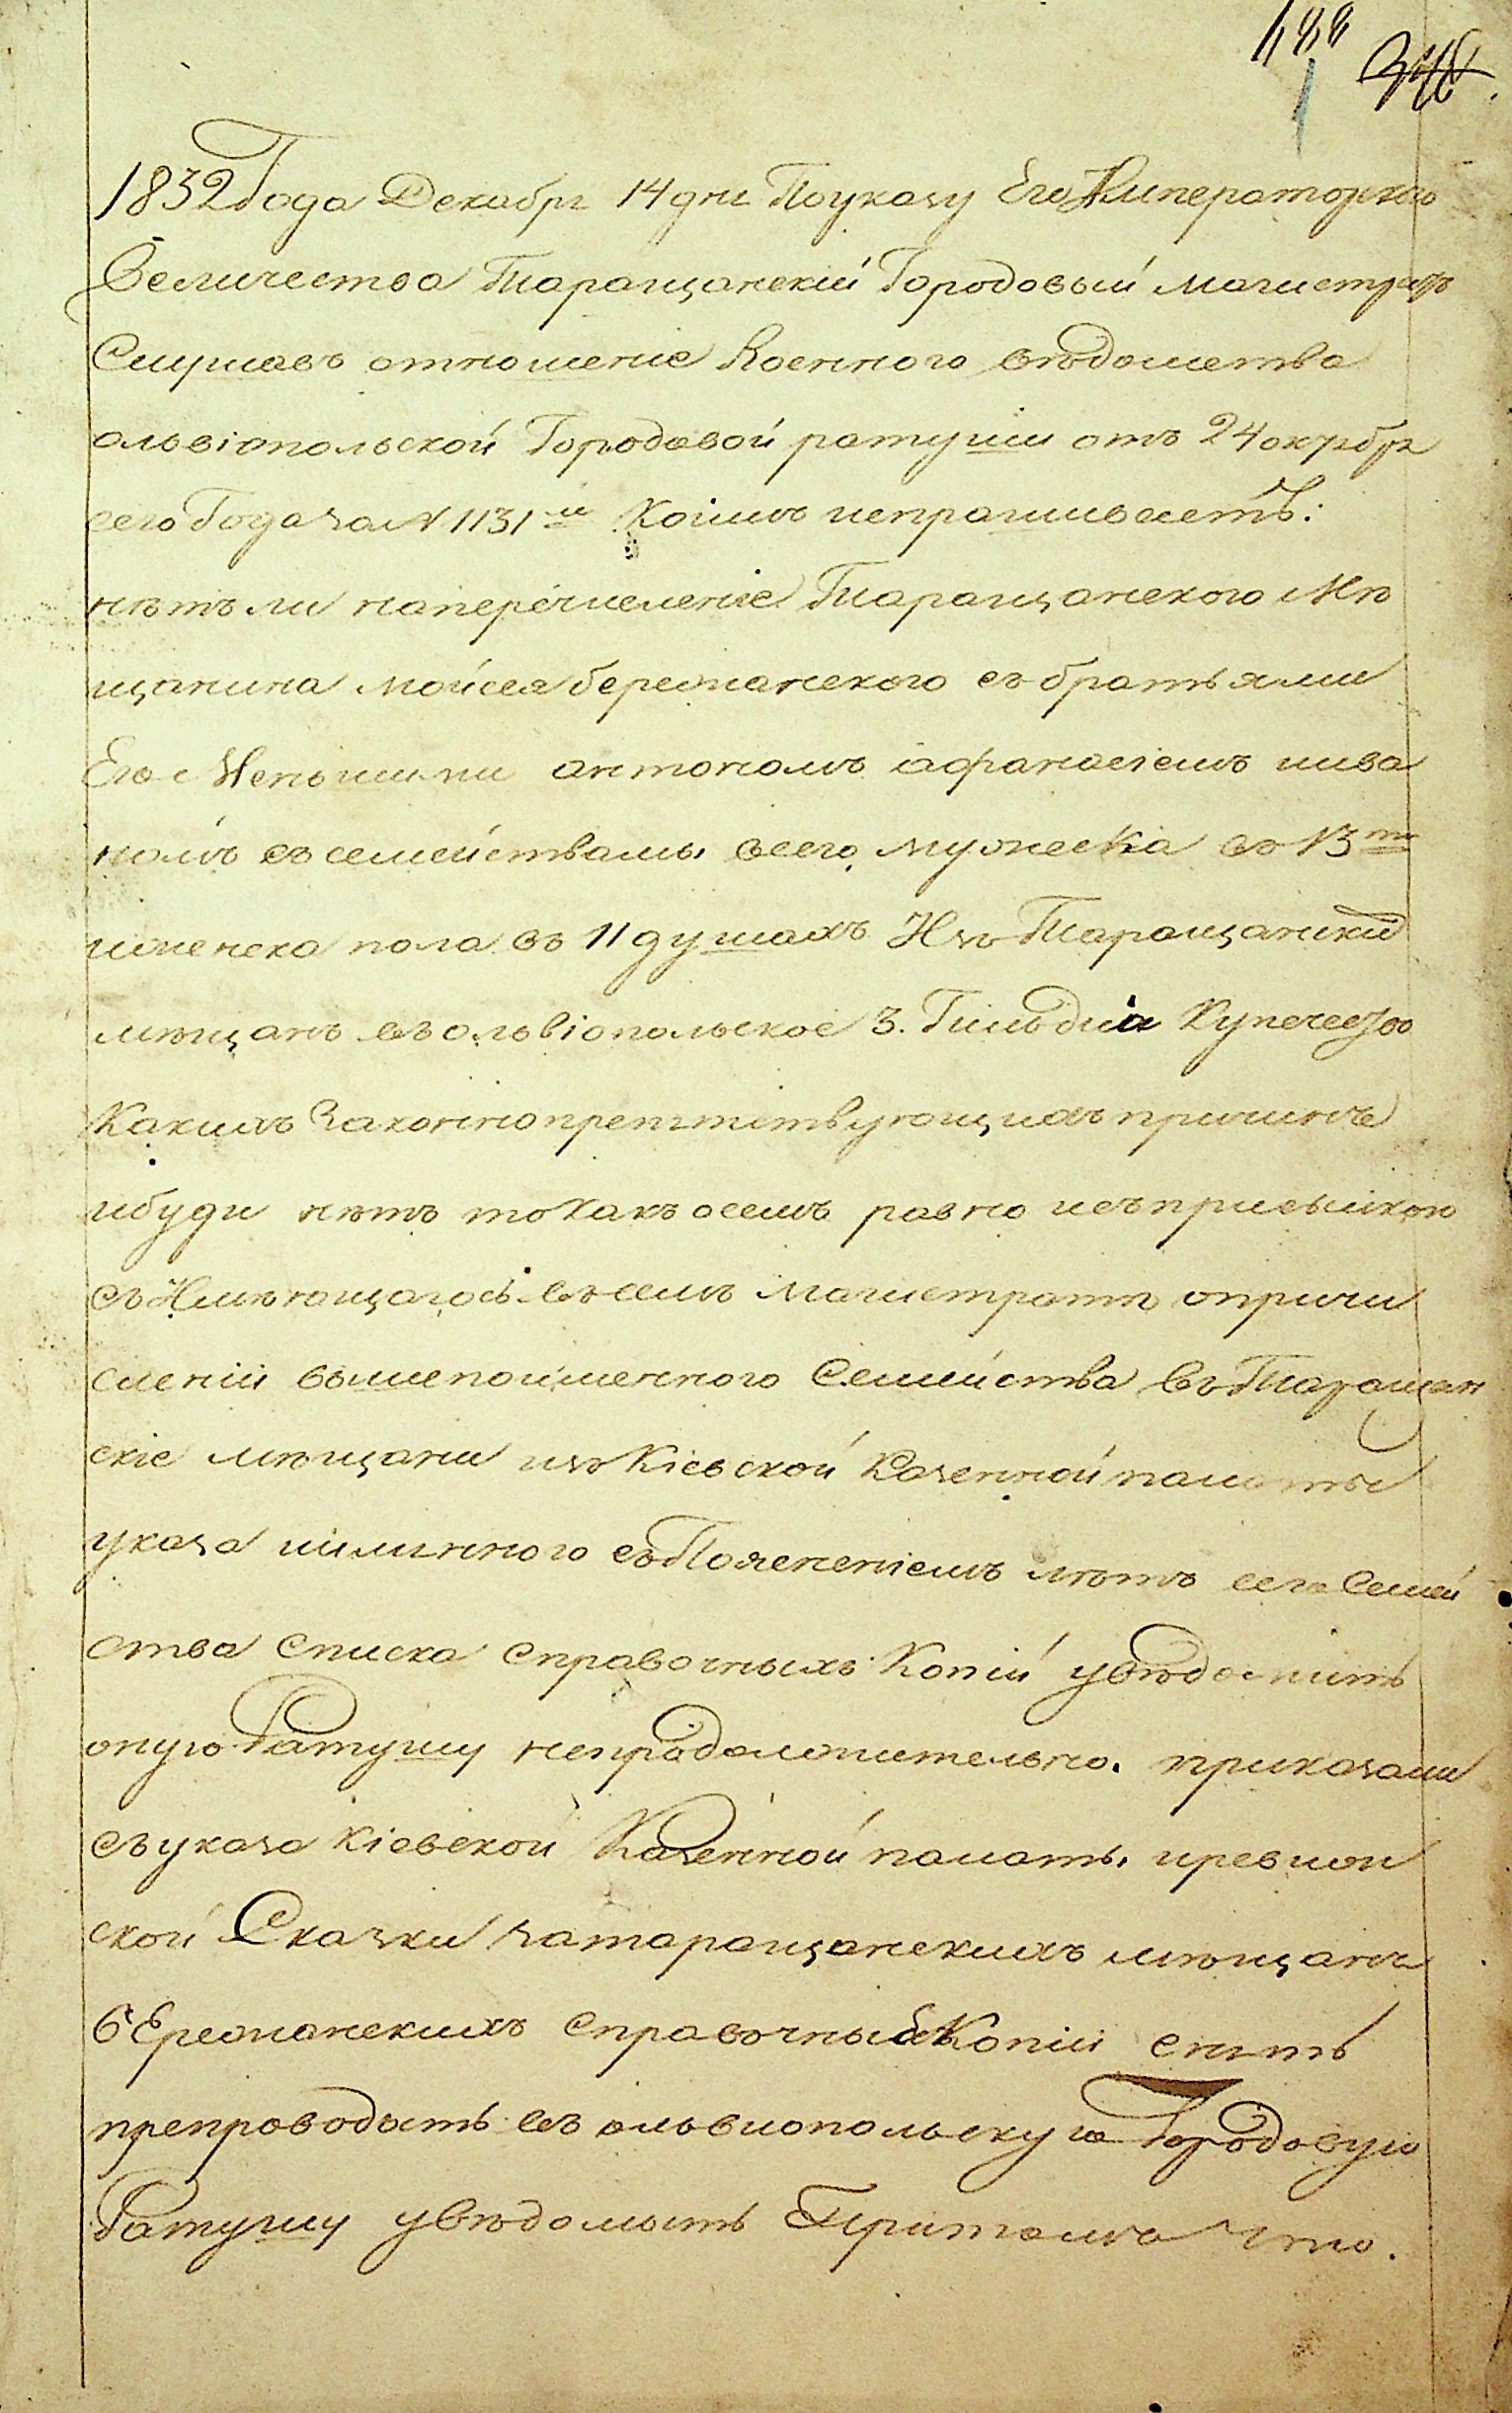 188 346.
1832 Года Декабря 14 дня Поуказу Его Императорского
Величества Таращанскій Городовый магистратъ
Слушавъ отношеніе Военного вѣдомства
ольвіопольской Городовой ратуши отъ 24 октября
сего Года за N 1131м Коимъ испрашиваетъ:
нѣтъ ли наперечисленіе Таращанского Мѣ
щанина мойсея бережанского съ братьями
Его Меньшими антономъ іафанасіемъ иива
номъ съ семействамы всего мужеска въ 13ти
женска пола въ 11 душахъ Изъ Таращанских
мѣщанъ въ ольвіопольское 3. Гильдіи Купечество
Какихъ Законнопрепятствующихъ причинъ
ибуди нѣтъ то Какъ осемъ равно исъприсылкою
съ Имѣющагось въ семъ магистратѣ опричи
сленіи вышепоименного Семейства въ Таращан
скіе мѣщани изъ Кіевской Казенной палаты
указа иименного съ Поясненіемъ лѣтъ сего Семей
ства списка справочныхъ Копій увѣдомить
оную Ратушу непродолжительно. приказали
съ указа Кіевской Казенной палаты иревизи
ской Сказки затаращанскихъ мѣщанъ
бЕрежанскихъ справочныя Копіи снять
препроводыть въ ольвиопольскую Городовую
Ратушу увѣдомыть Притомъ что.